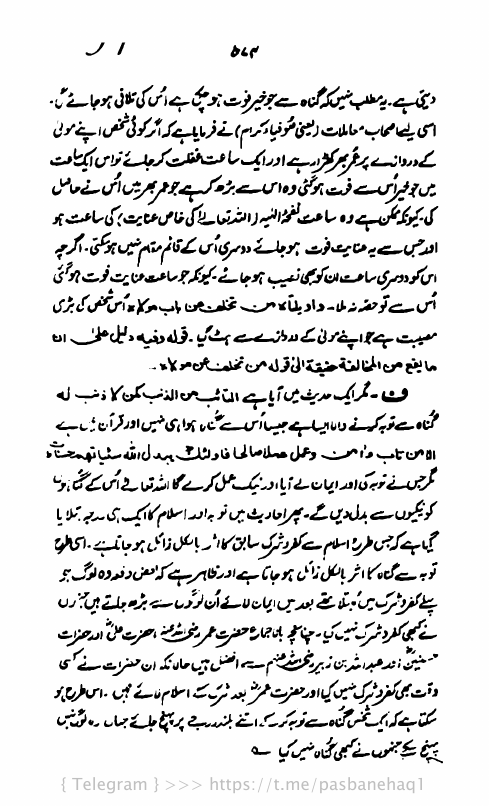 ۵۷۴
دیتی ہے۔ یہ مطلب نہیں کہ گناہ سے جو خیر فوت ہوچکی ہے اُس کی تلافی ہوجائے گی۔
اسی لیے اصحاب معاملات (یعنی صوفیاء کرام) نے فرمایا ہے کہ اگر کوئی شخص اپنے مولیٰ
کے دروازے پر عمر بھر کھڑا رہے اور ایک ساعت غفلت کرجائے تو اس ایک ساعت
میں جو خیر اُس سے فوت ہوگئی وہ اس سے بڑھ کر ہے جو عمر بھر میں اُس نے حاصل
کی۔ کیونکہ ممکن ہے وہ ساعت نفحۂ الٰہیہ (اللہ تعالیٰ کی خاص عنایت) کی ساعت ہو
اور جس سے یہ عنایت فوت ہوجائے دوسری اُس کے قائم مقام نہیں ہوسکتی۔ اگرچہ
اس کو دوسری ساعت ان کو بھی نصیب ہوجائے۔ کیونکہ جو ساعت عنایت فوت ہوگئی
اُس سے تو حصہ نہ ملا۔ واویلتاہ من تخلف عن باب مولاہ اُس شخص کی بڑی
مصیبت ہے جو اپنے مولیٰ کے دروازے سے ہٹ گیا۔ قوله وفیه دلیل علیٰ ان
ما یقع من المخالفة حقیقة الیٰ قوله من تخلف عن مولاہ۔
ف۔ مگر ایک حدیث میں آیا ہے التائب من الذنب کمن لا ذنب له
گناہ سے توبہ کرنے والا ایسا ہے جیسا اُس سے گناہ ہوا ہی نہیں اور قرآن میں ہے
الا من تاب وآمن وعمل عملا صالحا فاولئك یبدل الله سیئاتهم حسنات
مگر جس نے توبہ کی اور ایمان لے آیا اور نیک عمل کرے گا اللہ تعالےٰ اُس کے گناہوں
کو نیکیوں سے بدل دیں گے۔ پھر احادیث میں توبہ اور اسلام کا ایک ہی درجہ بتلایا
گیا ہے کہ جس طرح اسلام سے کفر و شرک سابق کا اثر بالکل زائل ہوجاتا ہے۔ اسی طرح
توبہ سے گناہ کا اثر بالکل زائل ہوجاتا ہے اور ظاہر ہے کہ بعض دفعہ وہ لوگ جو
پہلے کفر و شرک میں مبتلا تھے بعد میں ایمان لاکے اُن لوگوں سے بڑھ جاتے ہیں جنہوں
نے کبھی کفر و شرک نہیں کیا۔ چنانچہ باجماع حضرت عمر رضی اللہ عنہ، حضرت علیؓ اور حضرات
حسنینؓ اور عبداللہ بن زبیر رضی اللہ عنہم سے افضل ہیں حالانکہ ان حضرات نے کسی
وقت بھی کفر و شرک نہیں کیا اور حضرت عمرؓ بعد شرک کے اسلام لائے ہیں۔ اس طرح ہو
سکتا ہے کہ ایک شخص گناہ سے توبہ کرکے اتنے بلند درجے پر پہنچ جائے جہاں وہ لوگ نہیں
پہنچ سکے جنہوں نے کبھی گناہ نہیں کیا
{ Telegram } >>> https://t.me/pasbanehaq1